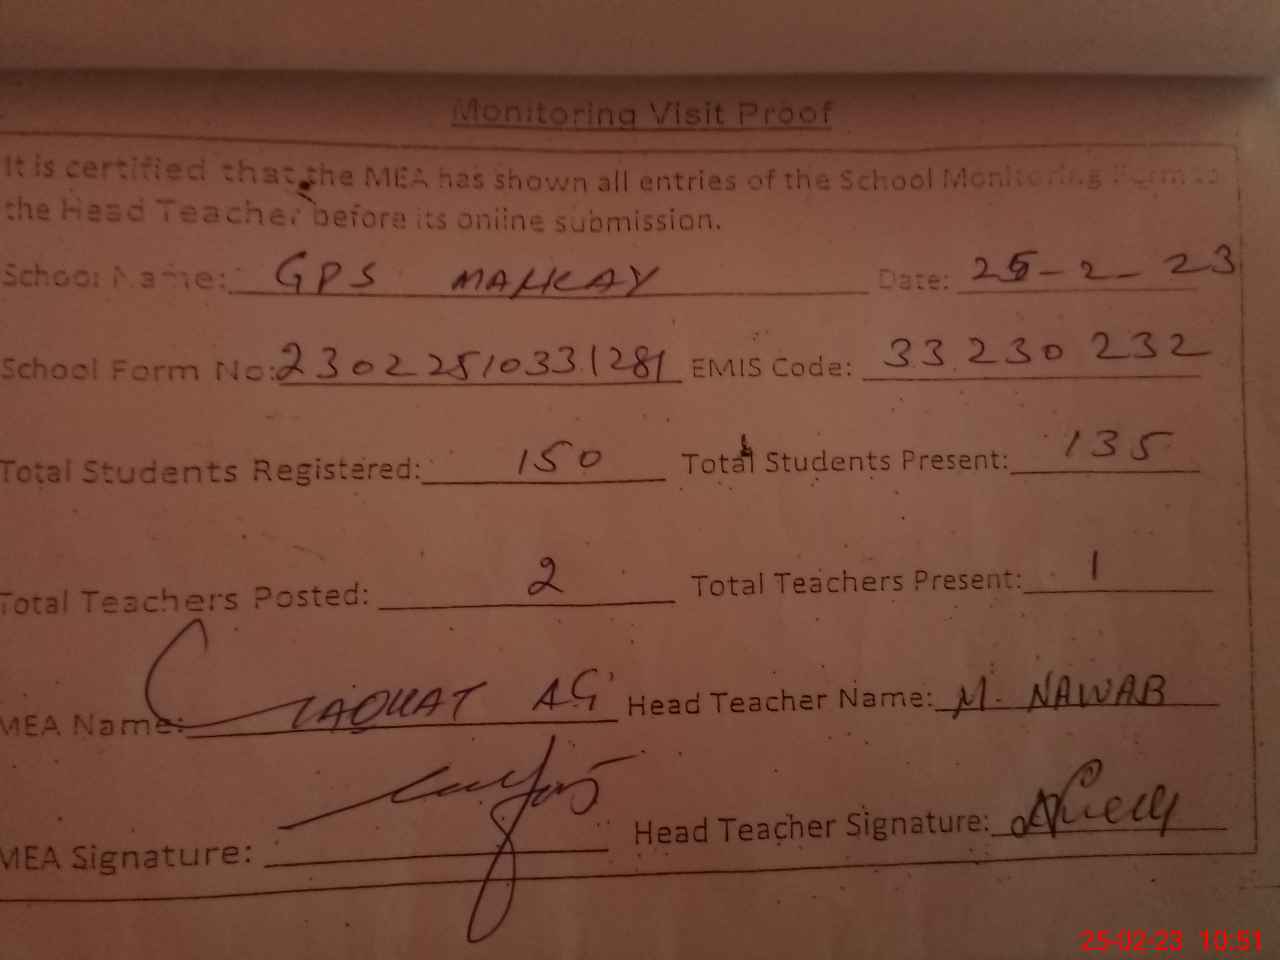 Monitoring Visit Proof
It is certified that the MEA has shown all entries of the School Monitoring Form to
the Head Teacher before its online submission.
School Name: GPS MAHKAY Date: 25-2-23
School Form No: 23022510331281 EMIS Code: 33230232
Total Students Registered: 150 Total Students Present: 135
Total Teachers Posted: 2 Total Teachers Present: 1
MEA Name: Head Teacher Name: M. NAWAB
MEA Signature: Head Teacher Signature:
25-02-23 10:51